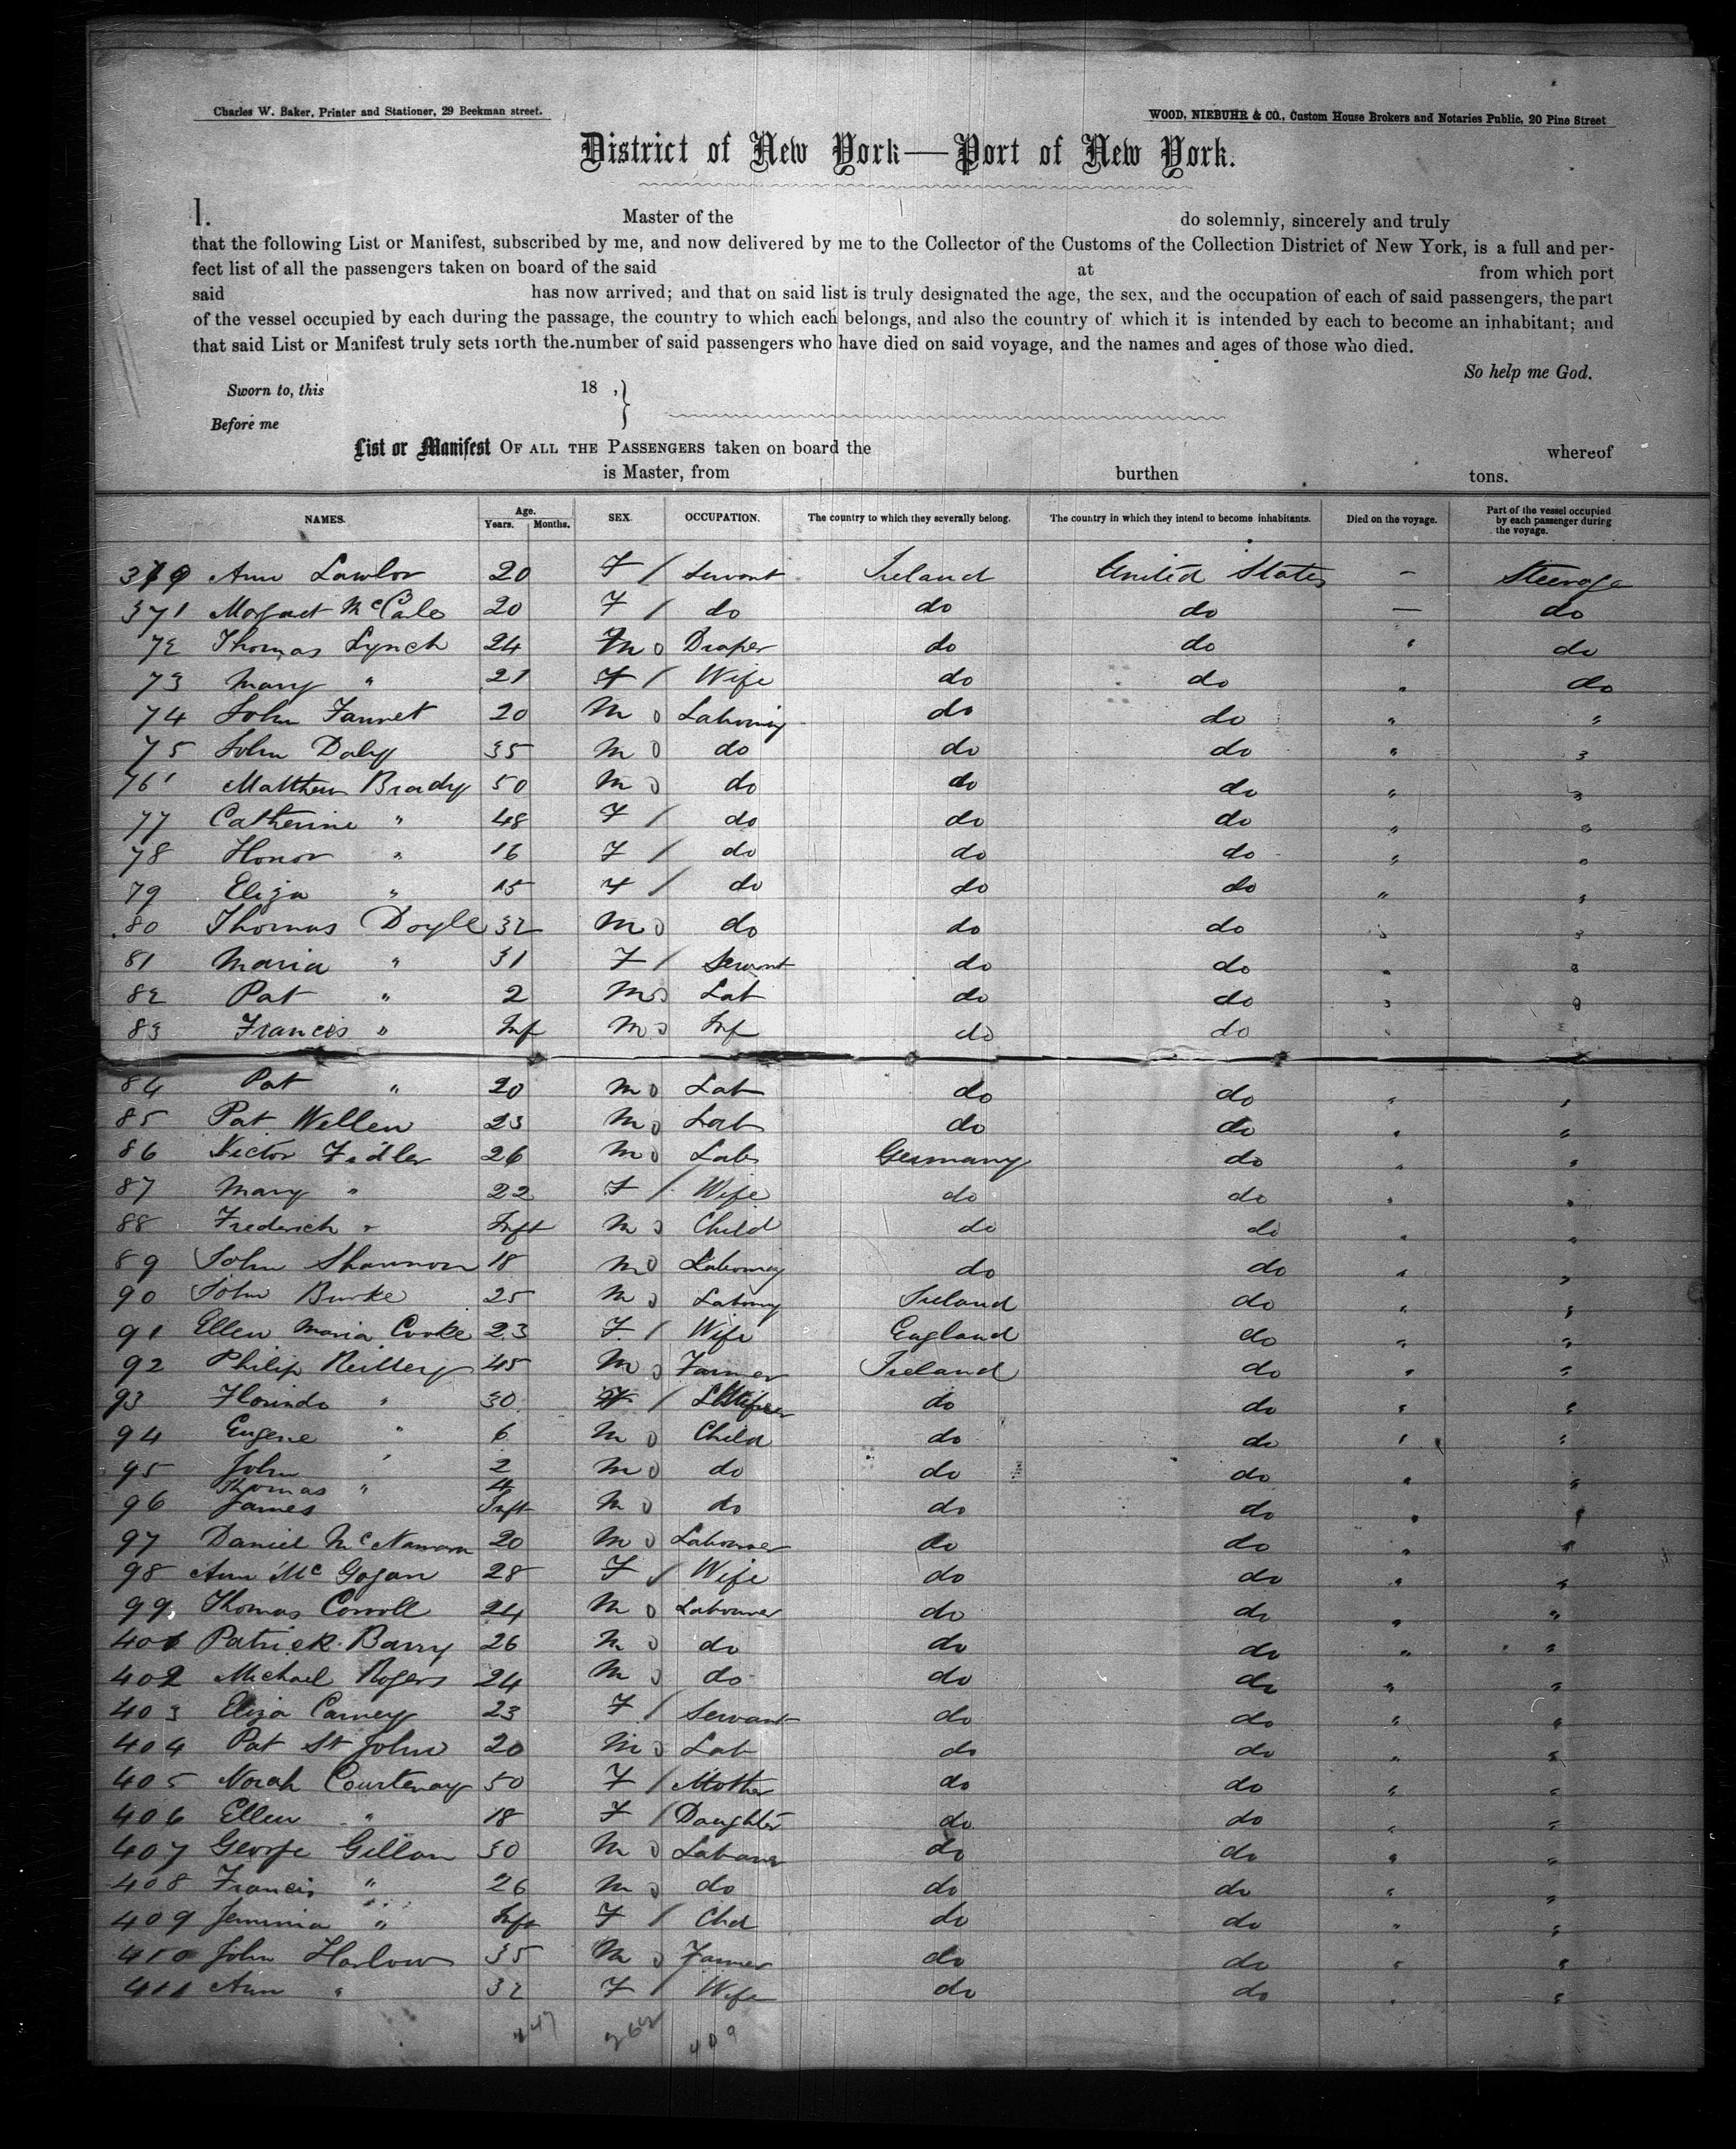 Charles W. Baker, Printer and Stationer, 29 Beekman street.
WOOD, NIEBUHR & CO., Custom House Brokers and Notaries Public, 20 Pine Street
District of New York—Port of New York.
I. Master of the do solemnly, sincerely and truly
that the following List or Manifest, subscribed by me, and now delivered by me to the Collector of the Customs of the Collection District of New York, is a full and per-
fect list of all the passengers taken on board of the said at from which port
said has now arrived; and that on said list is truly designated the age, the sex, and the occupation of each of said passengers, the part
of the vessel occupied by each during the passage, the country to which each belongs, and also the country of which it is intended by each to become an inhabitant; and
that said List or Manifest truly sets forth the number of said passengers who have died on said voyage, and the names and ages of those who died.
So help me God.
Sworn to, this 18 , }
Before me
List or Manifest OF ALL THE PASSENGERS taken on board the whereof
is Master, from burthen tons.
NAMES. Age. Years. Months. SEX. OCCUPATION. The country to which they severally belong. The country in which they intend to become inhabitants. Died on the voyage. Part of the vessel occupied by each passenger during the voyage.
Ann Lawlor 20 F / Servant Ireland United States — Steerage
371 Margaret McCale 20 F / do do do — do
72 Thomas Lynch 24 M 0 Draper do do " do
73 Mary " 21 F / Wife do do " do
74 John 20 M 0 do do " "
75 John Daly 35 M 0 do do do " "
76 Matthew Brady 50 M 0 do do do " "
77 Catherine " 48 F / do do do " "
78 Honor " 16 F / do do do " "
79 Eliza " 15 F / do do do " "
80 Thomas Doyle 32 M 0 do do do " "
81 Maria " 31 F / Servant do do " "
82 Pat " 2 M 0 Lab do do " "
83 Francis " Inf M 0 Inf do do
84 Pat " 20 M 0 Lab do do " "
85 Pat Wellen 23 M 0 Lab do do " "
86 Victor Fidler 26 M 0 Lab Germany do " "
87 Mary " 22 F / Wife do do " "
88 Frederich " Inft M 0 Child do do " "
89 John Shannon 18 M 0 do do " "
90 John Burke 25 M 0 Ireland do " "
91 Ellen Maria Cooke 23 F / Wife England do " "
92 Philip Reillery 45 M 0 Farmer Ireland do " "
93 Florinda " 30 F / Wife do do " "
94 Eugene " 6 M 0 Child do do " "
95 John " 2 M 0 do do do " "
Thomas " 4
96 James Inft M 0 do do do " "
97 Daniel McNamara 20 M 0 Labourer do do " "
98 Ann McGogan 28 F / Wife do do " "
99 Thomas Corroll 24 M 0 Labourer do do " "
401 Patrick Barry 26 M 0 do do do " "
402 Michael Rogers 24 M 0 do do do " "
403 Eliza Carney 23 F / Servant do do " "
404 Pat St John 20 M 0 Lab do do " "
405 Norah Courtenay 50 F / Mother do do " "
406 Ellen " 18 F / Daughter do do " "
407 George Gillan 30 M 0 Labourer do do " "
408 Francis " 26 M 0 do do do " "
409 Jemima " Inft F / Chd do do " "
410 John Harlow 35 M 0 Farmer do do " "
411 Ann " 32 F / Wife do do " "
409